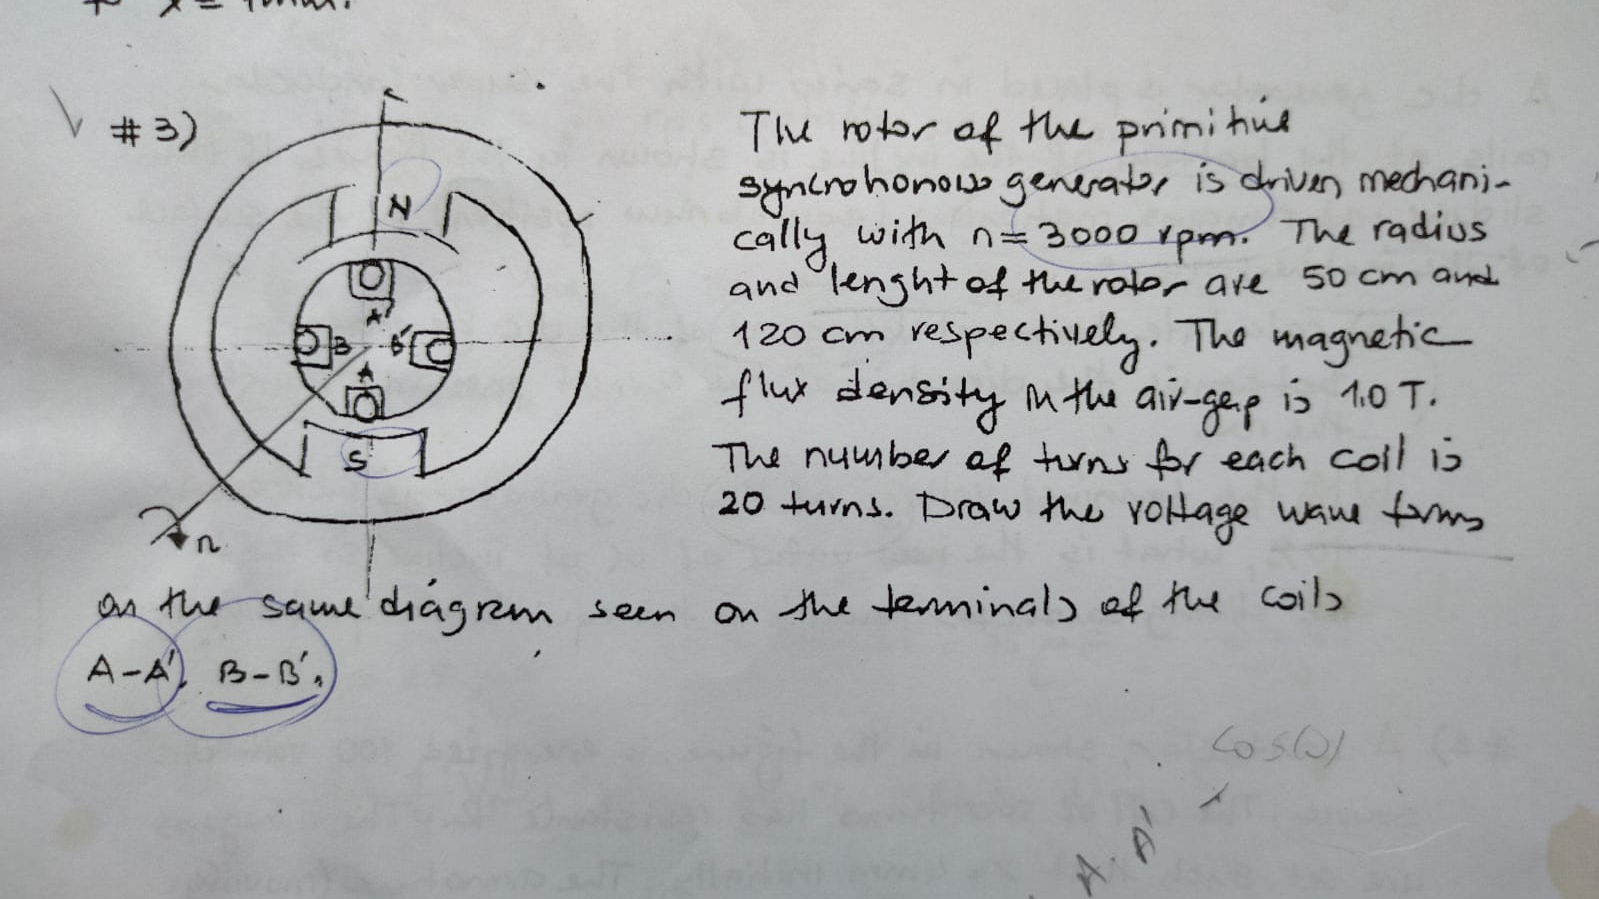 x = 1mm.
#3)
The rotor of the primitive
syncrohonous generator is driven mechani-
cally with n = 3000 rpm. The radius
and lenght of the rotor are 50 cm and
120 cm respectively. The magnetic
flux density in the air-gap is 1.0 T.
The number of turns for each coil is
20 turns. Draw the voltage wave forms
on the same diagram seen on the terminals of the coils
A-A', B-B'.
N
A'
B B'
A
S
n
cos(ω)
A-A'